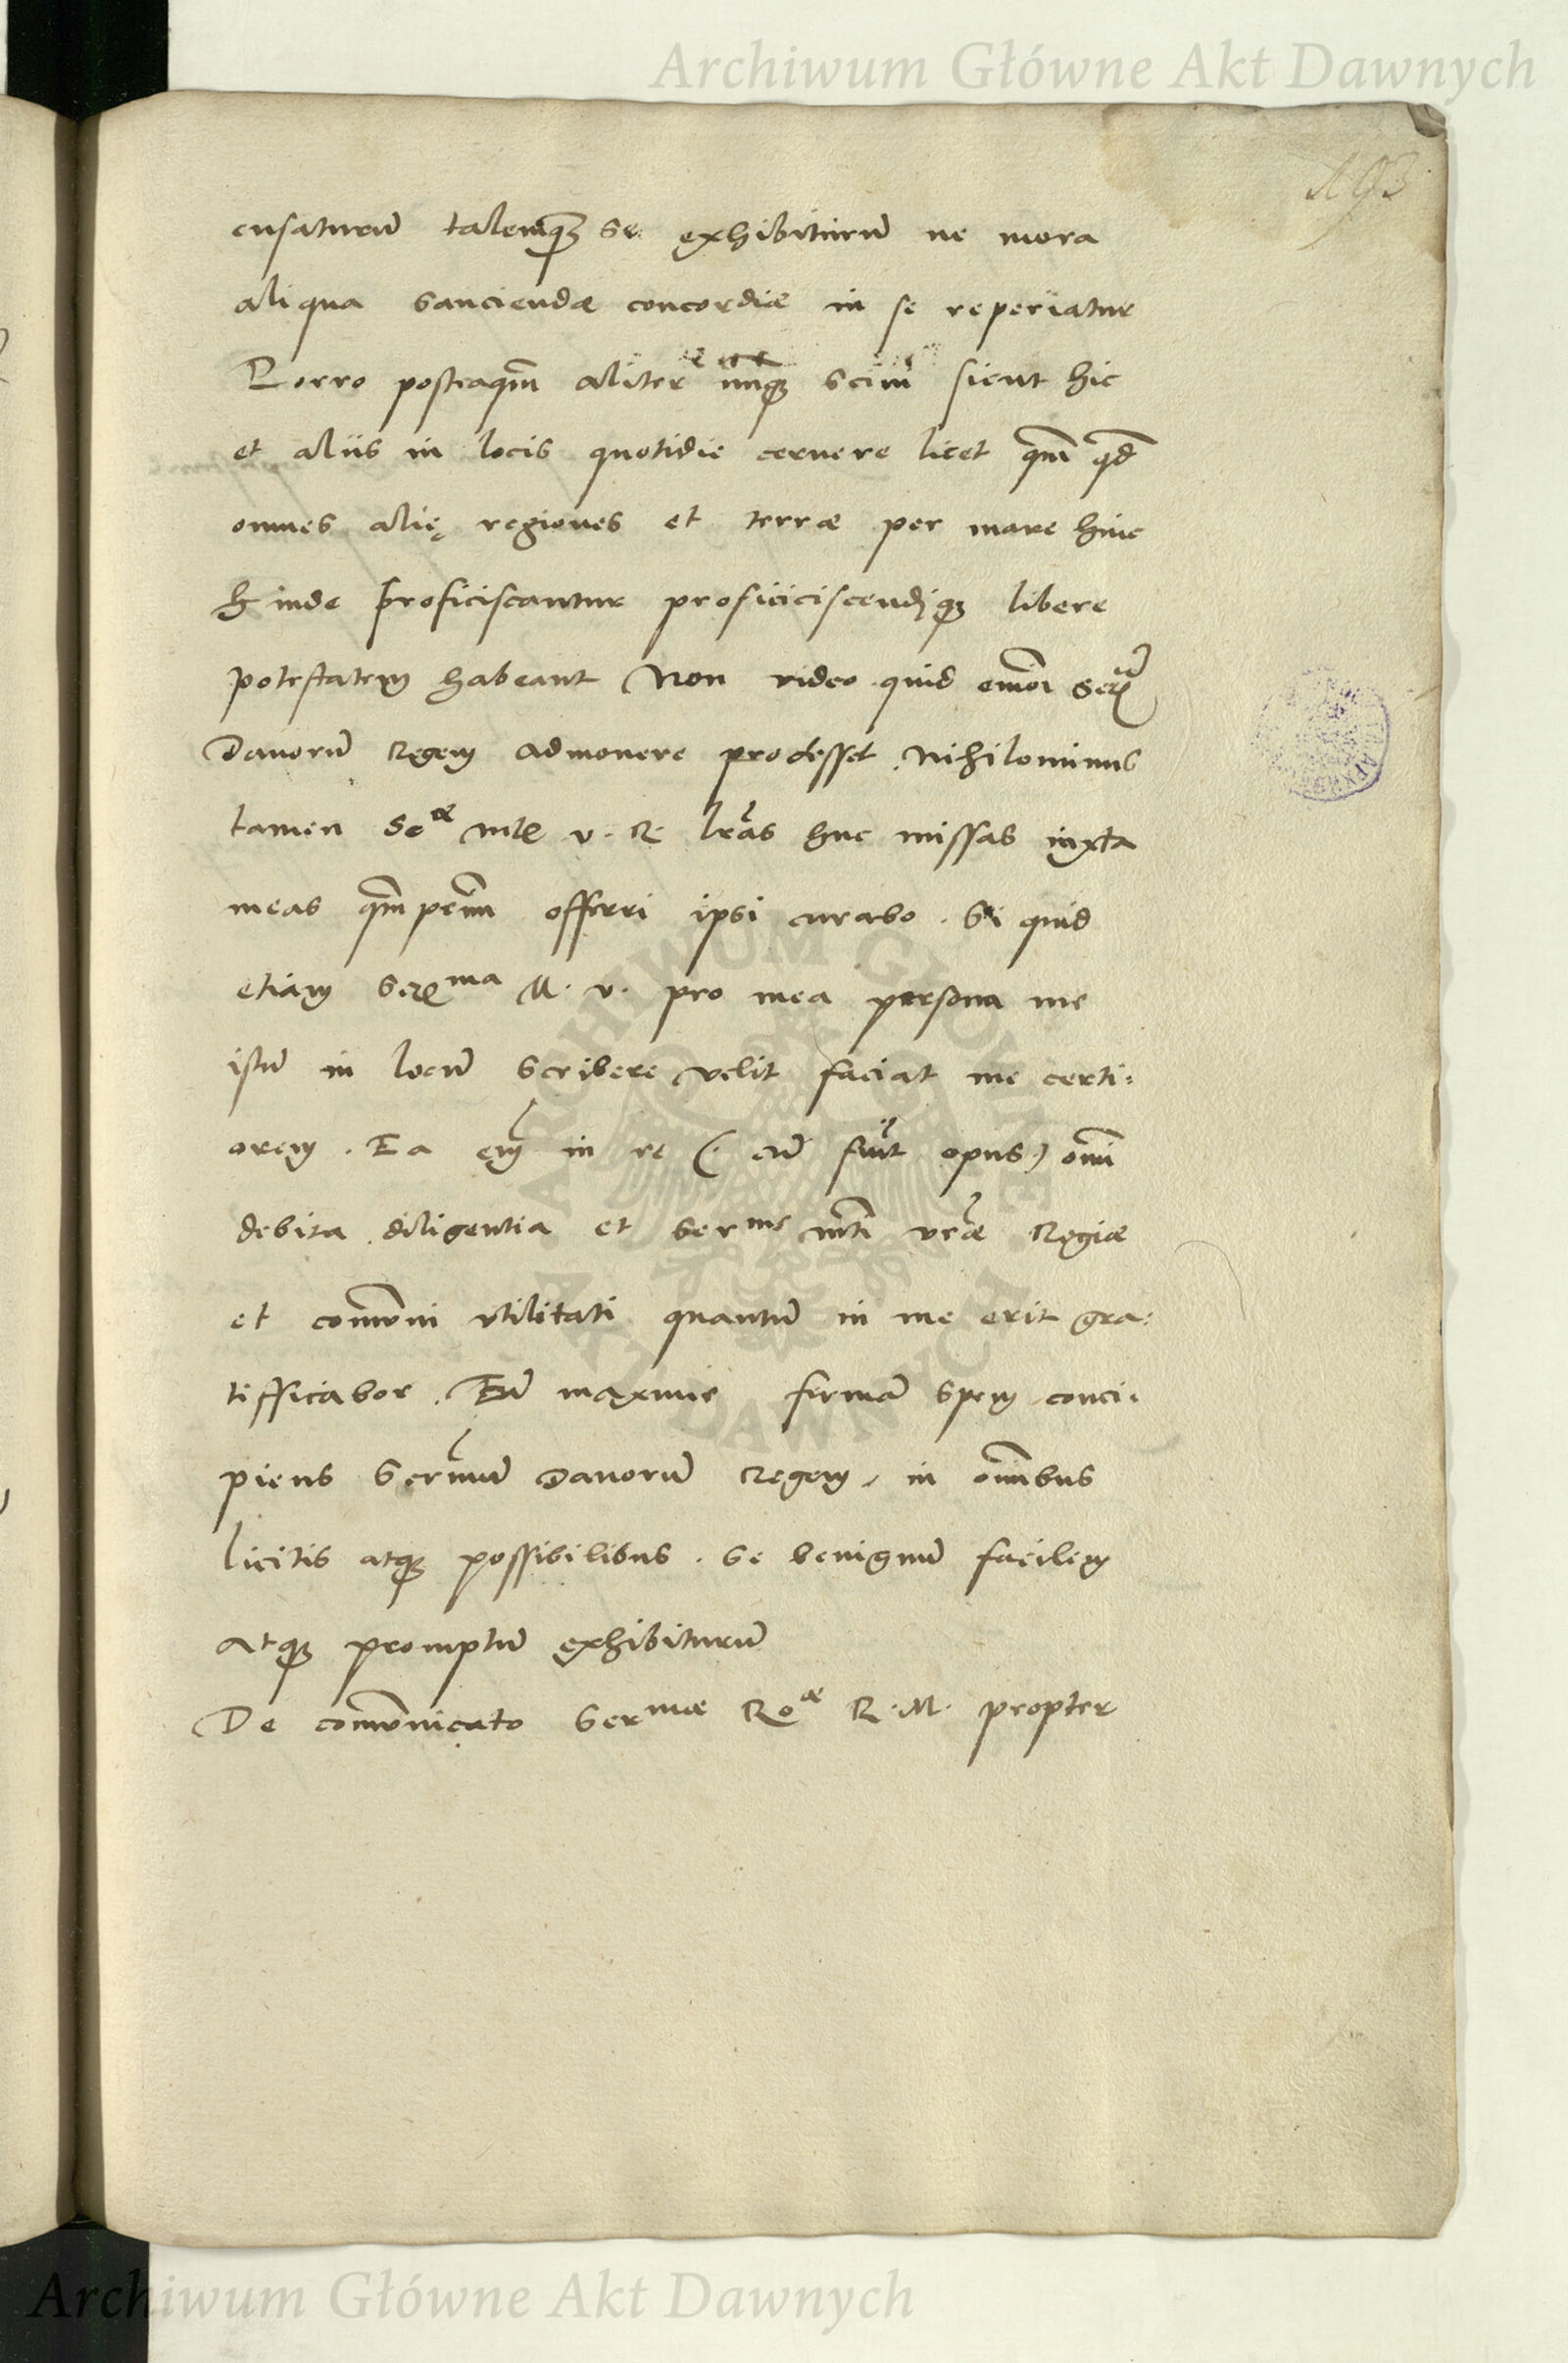 Archiwum Główne Akt Dawnych
193
cusaturū talemqȝ se exhibiturū ne mora
aliqua sanciendæ concordiæ in se reperiatur
Porro posteaqm̄ aliter nunqȝ sciui sicut hic
et aliis in locis quotidie cernere licet qm̄ qd̄
omnes alię regiones et terræ per mare hinc
h inde proficiscantur proficiciscendiqȝ libere
potestatem habeant Non video quid em̄oi
Danorū Regem admonere prodesset. Nihilominus
tamen Seæ mtē v. R. lr̄as huc missas iuxta
meas qm̄prim̄ offerri ipsi curabo. Si quid
etiam Serema M. v. pro mea persona me
istū in locū scribere velit faciat me certi:
orem. Ea em̄ in re (. cū fuīt opus) om̄i
debita diligentia et Serme mti vr̄æ Regiæ
et com̄uni vtilitati quantū in me erit gra:
tifficabor. Eū maxime firmā spem conci:
piens Serm̄um Danorū Regem, in om̄ibus
licitis atqȝ possibilibus. se benignū facilem
atqȝ promptū exhibiturū
De com̄unicato Sermæ Roæ R. M. propter
ARCHIWUM GŁÓWNE
AKT DAWNYCH
Archiwum Główne Akt Dawnych